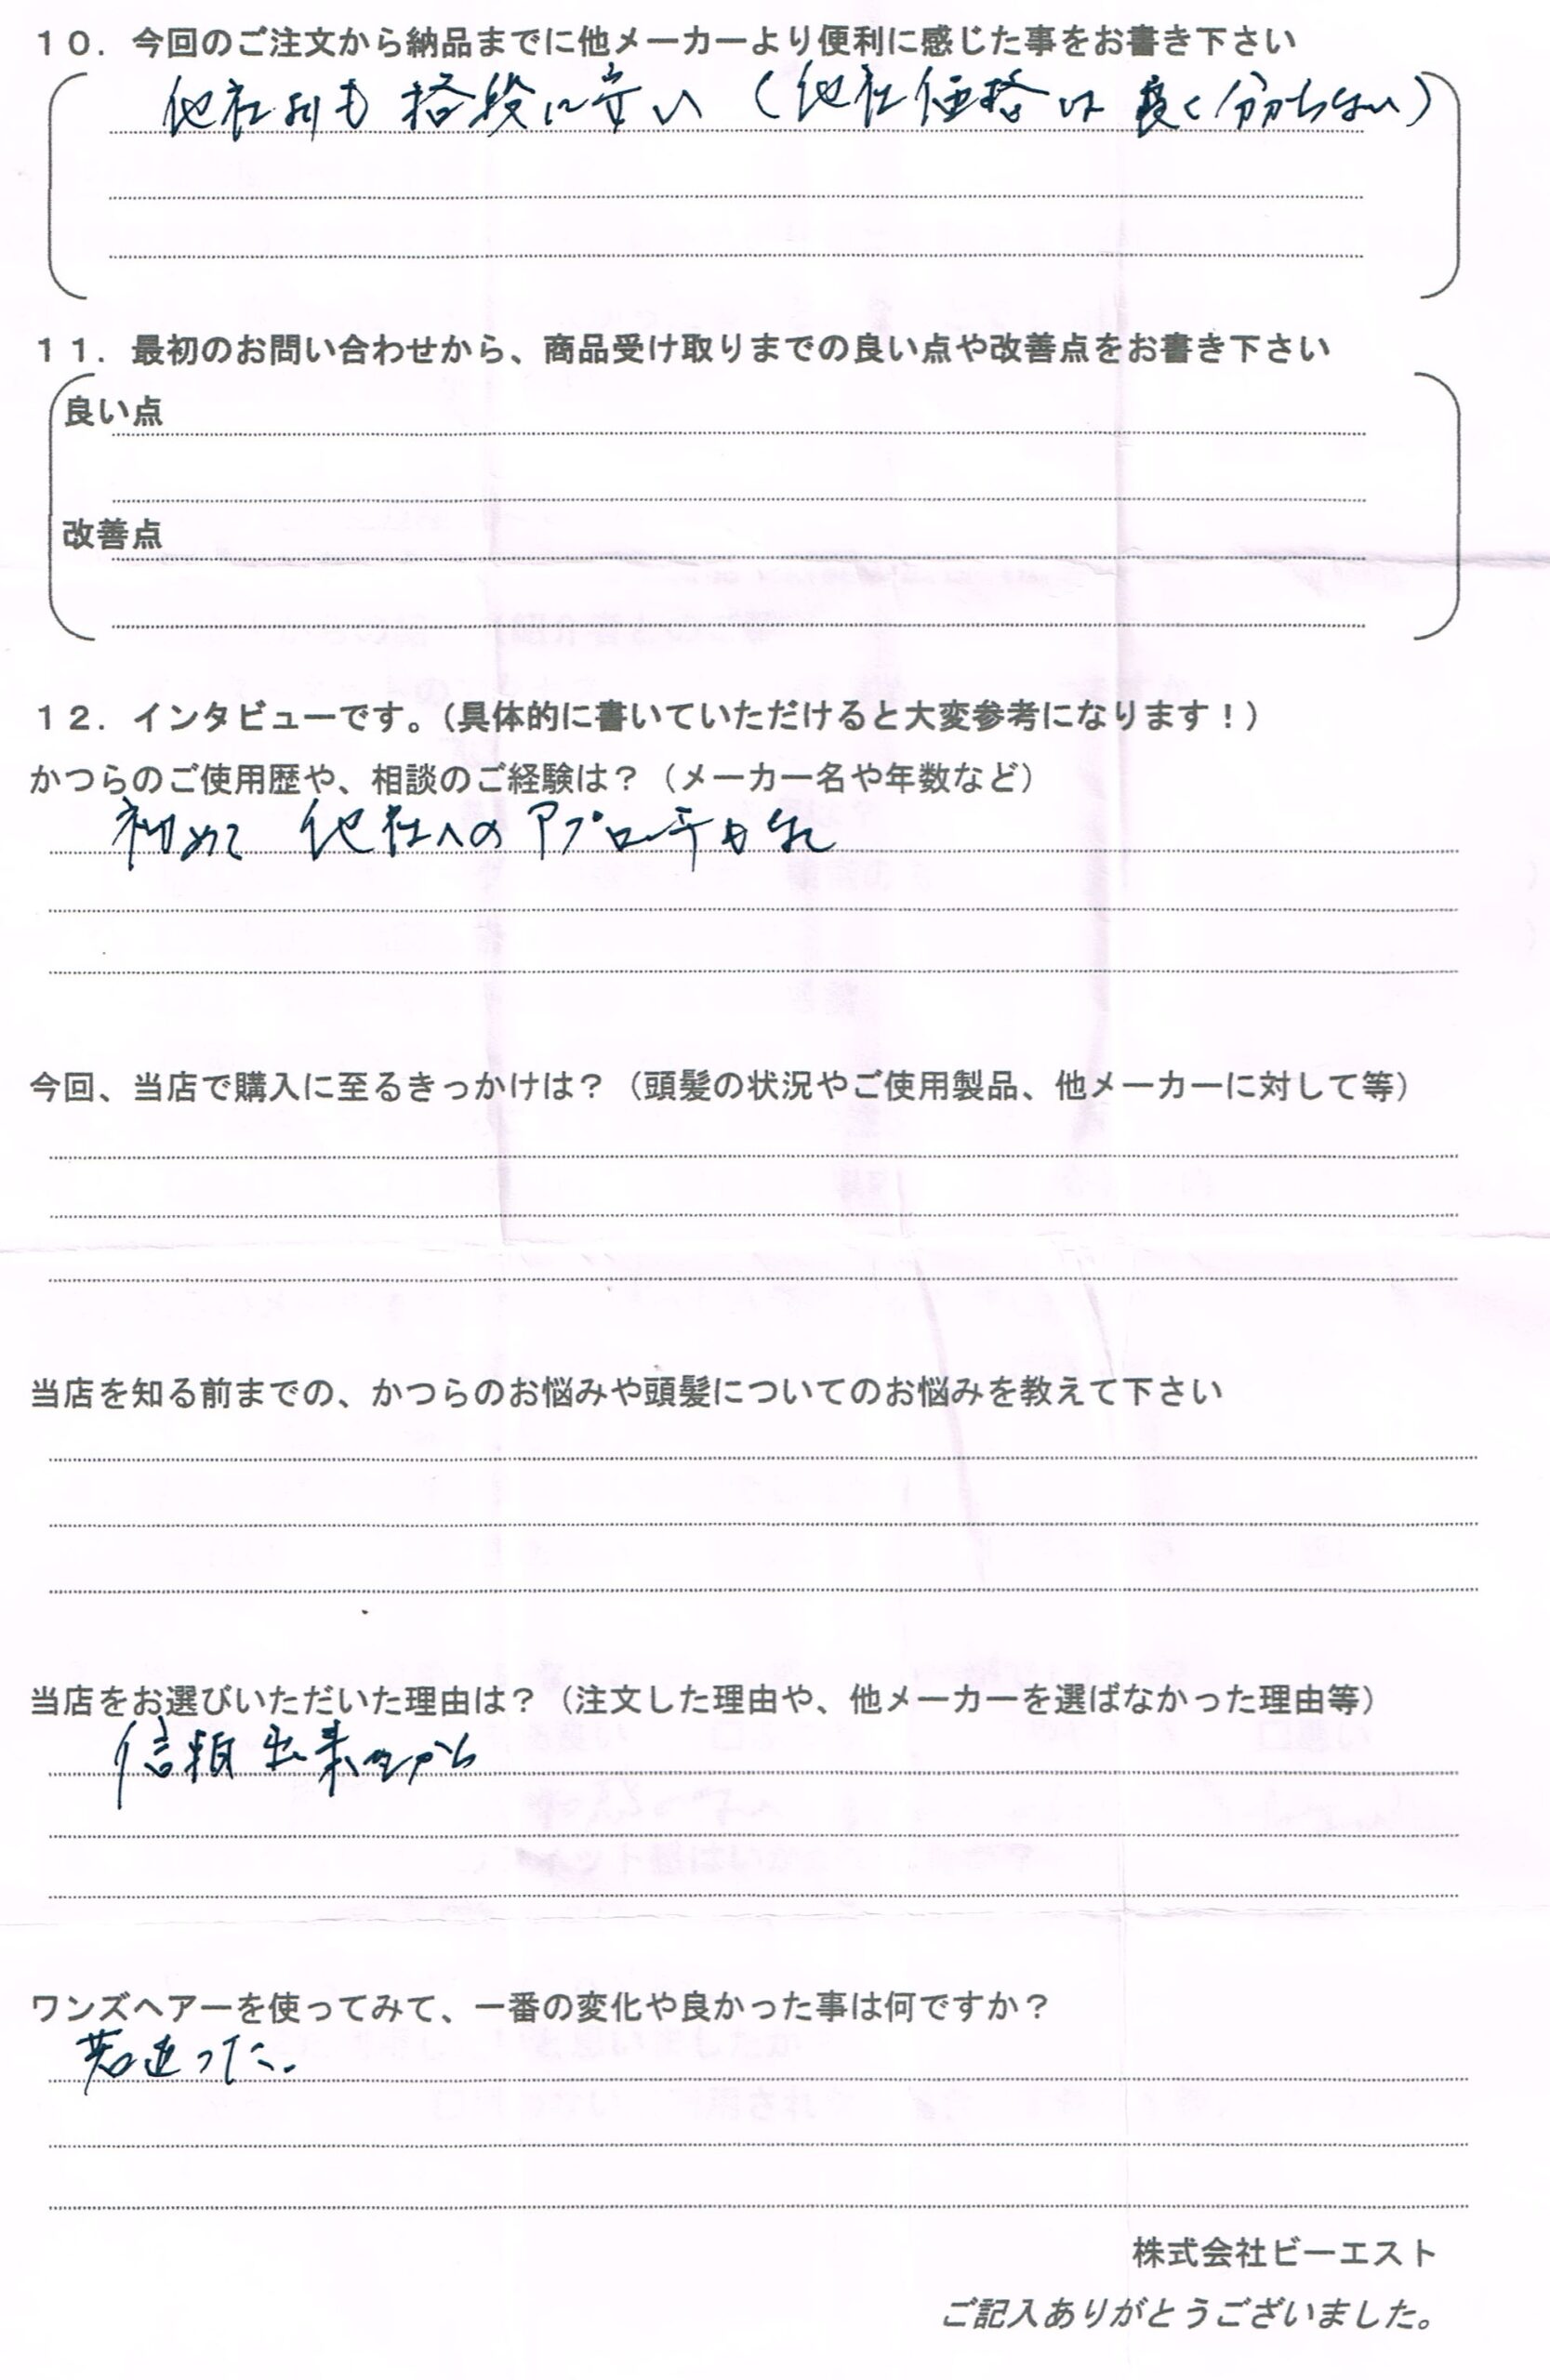 10．今回のご注文から納品までに他メーカーより便利に感じた事をお書き下さい
他社よりも 格段に安い（他社価格は 良く分からない）
11．最初のお問い合わせから、商品受け取りまでの良い点や改善点をお書き下さい
良い点
改善点
12．インタビューです。（具体的に書いていただけると大変参考になります！）
かつらのご使用歴や、相談のご経験は？（メーカー名や年数など）
初めて 他社へのアプローチもなし
今回、当店で購入に至るきっかけは？（頭髪の状況やご使用製品、他メーカーに対して等）
当店を知る前までの、かつらのお悩みや頭髪についてのお悩みを教えて下さい
当店をお選びいただいた理由は？（注文した理由や、他メーカーを選ばなかった理由等）
信頼出来るから
ワンズヘアーを使ってみて、一番の変化や良かった事は何ですか？
若返った。
株式会社ビーエスト
ご記入ありがとうございました。